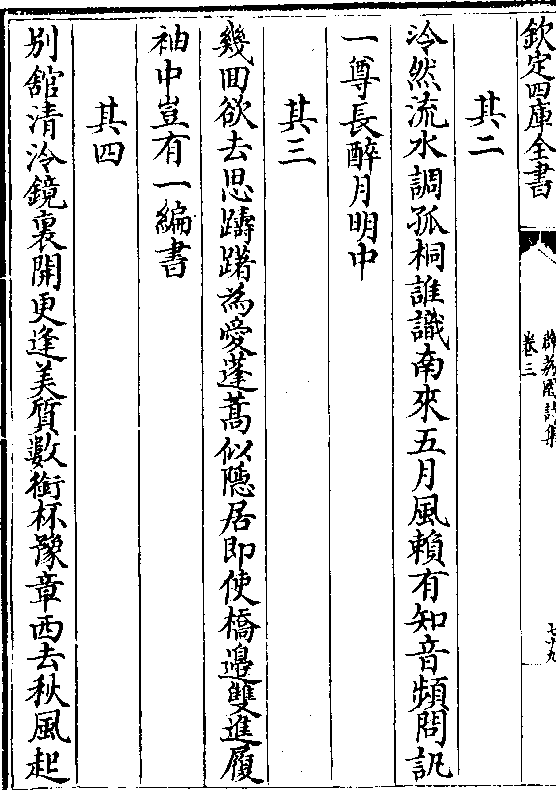 欽定四庫全書
卷三
七十九
其二
泠然流水調孤桐誰識南來五月風賴有知音頻問訊
一尊長醉月明中
其三
幾回欲去思躊躇為愛蓬蒿似隱居即使橋邊雙進履
袖中豈有一編書
其四
别舘清泠鏡裏開更逢美質數銜杯豫章西去秋風起